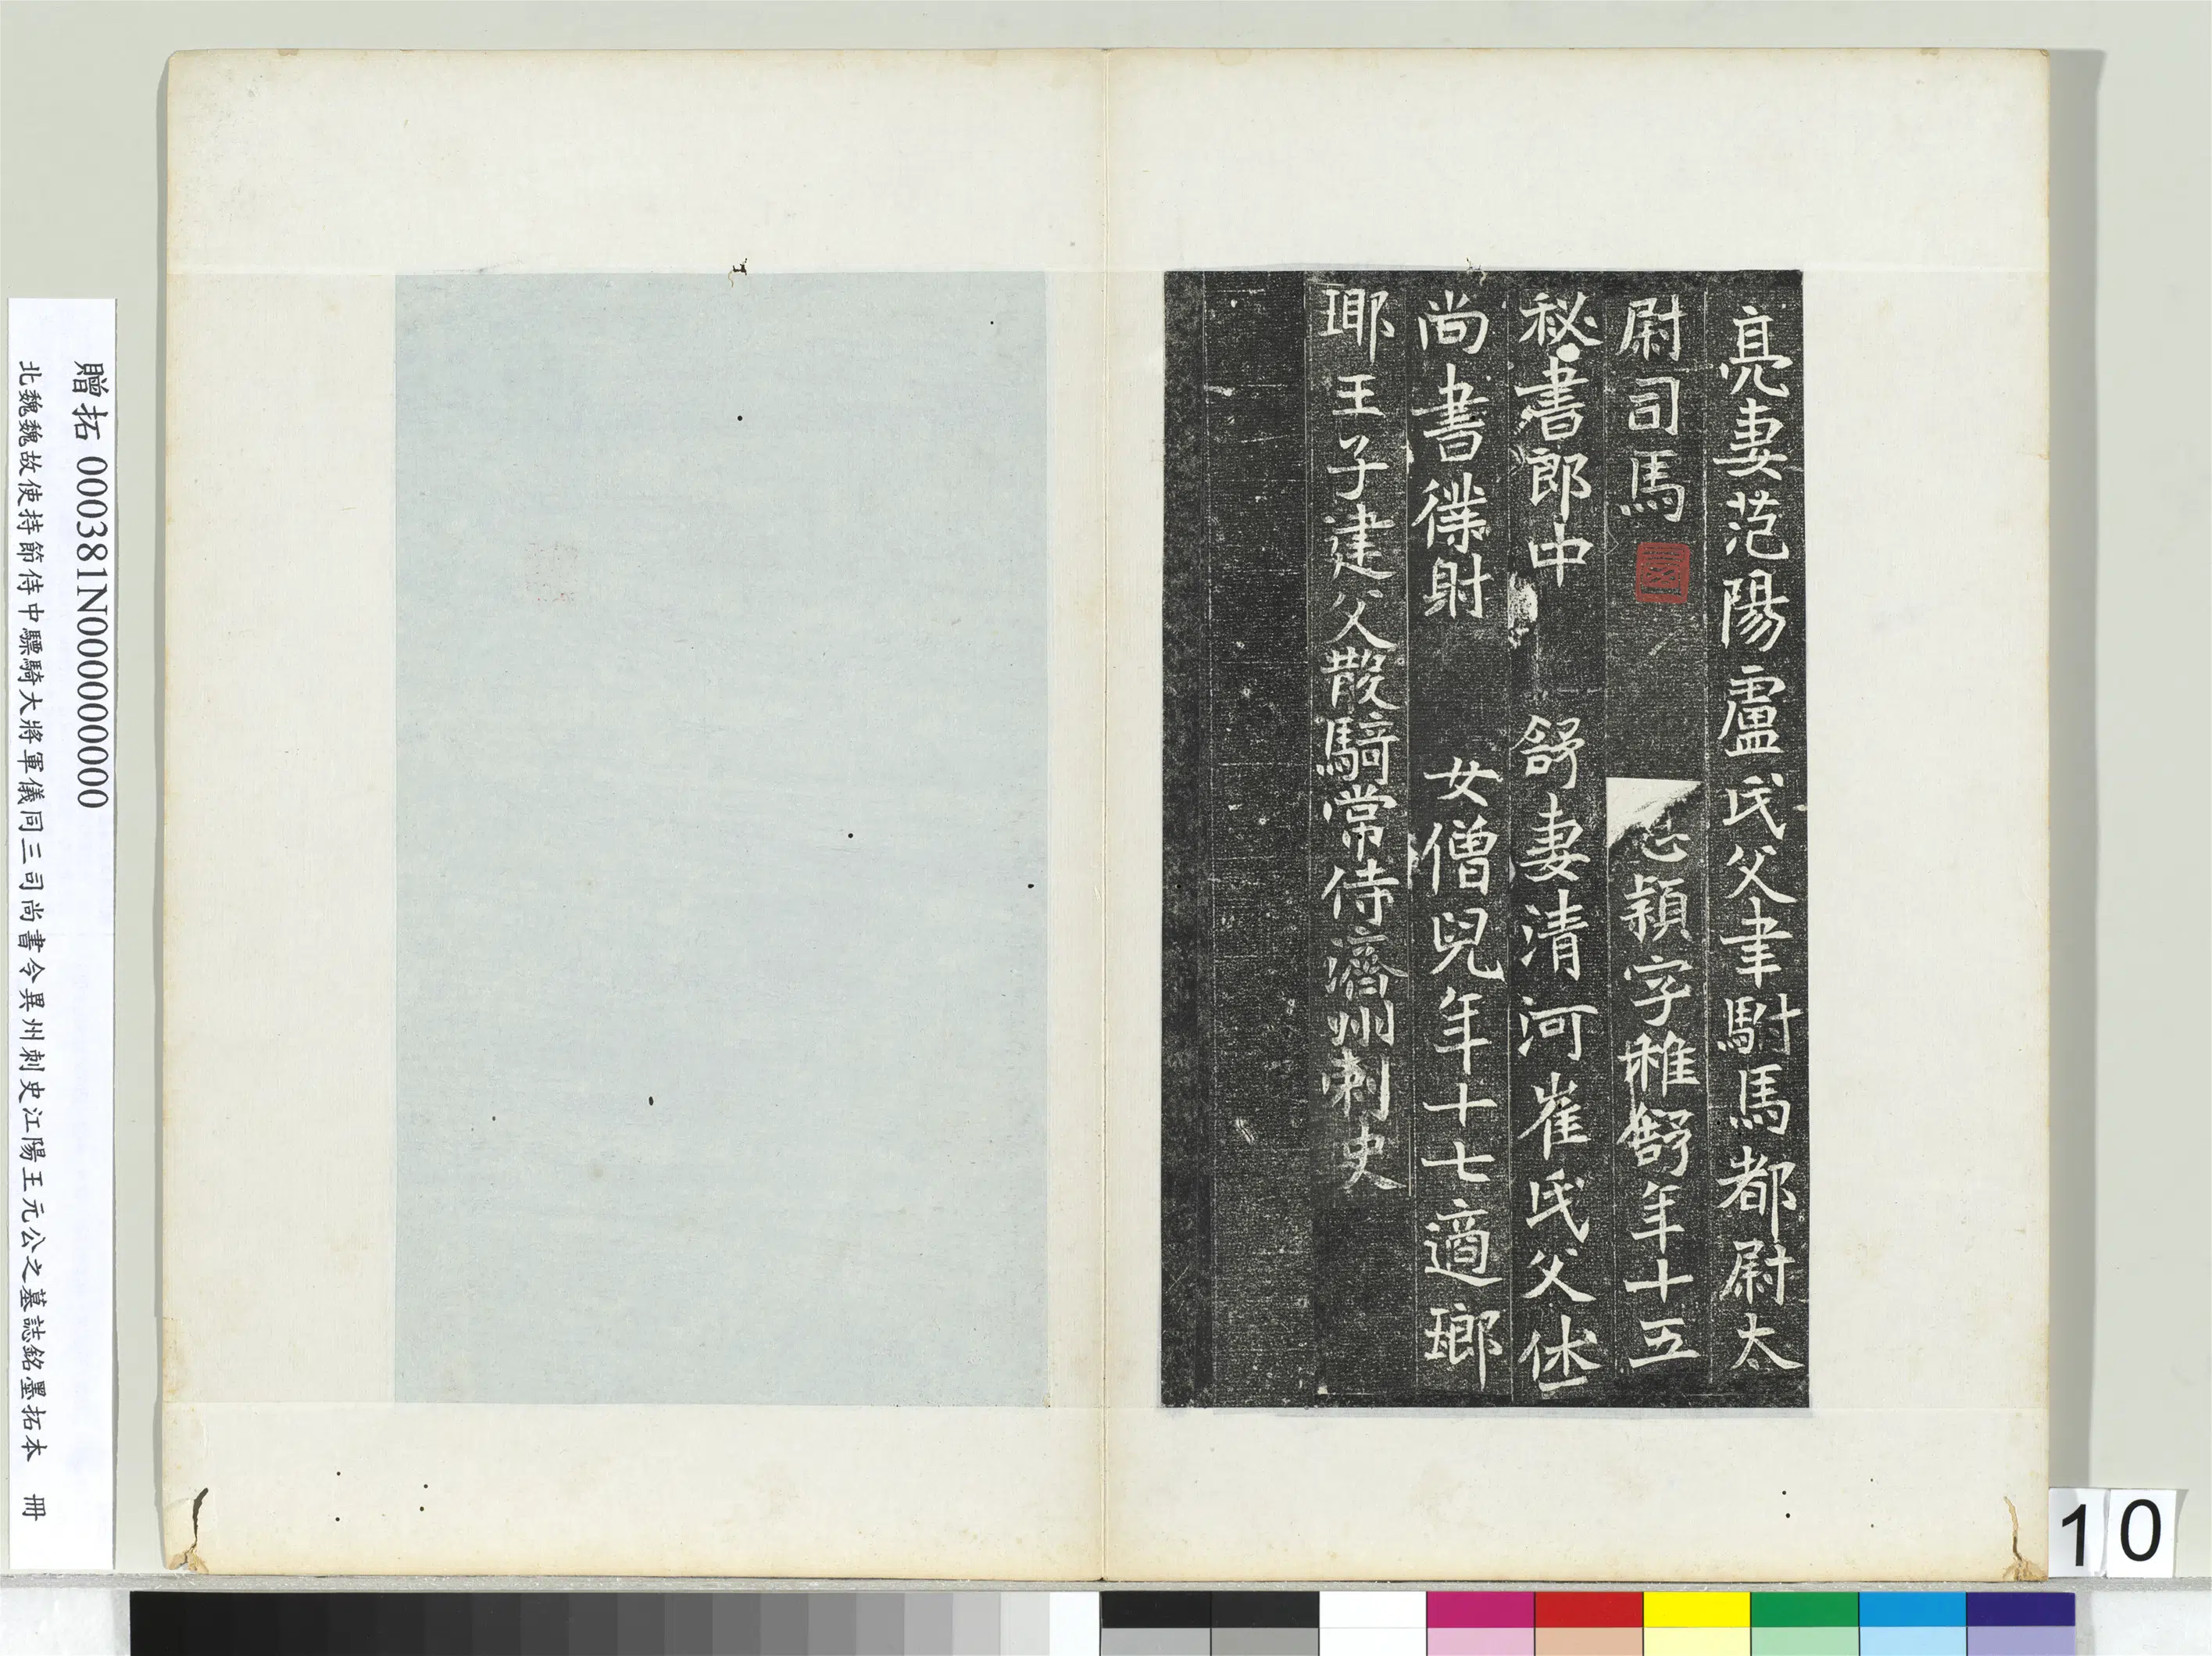 亮妻范陽盧氏父聿駙馬都尉太
尉司馬
穎字稚舒年十五
秘書郎中 舒妻清河崔氏父休
尚書僕射 女僧兒年十七適瑯
瑘王子建父散騎常侍濟州刺史
贈拓 000381N000000000
北魏魏故使持節侍中驃騎大將軍儀同三司尚書令冀州刺史江陽王元公之墓誌銘墨拓本 冊
10